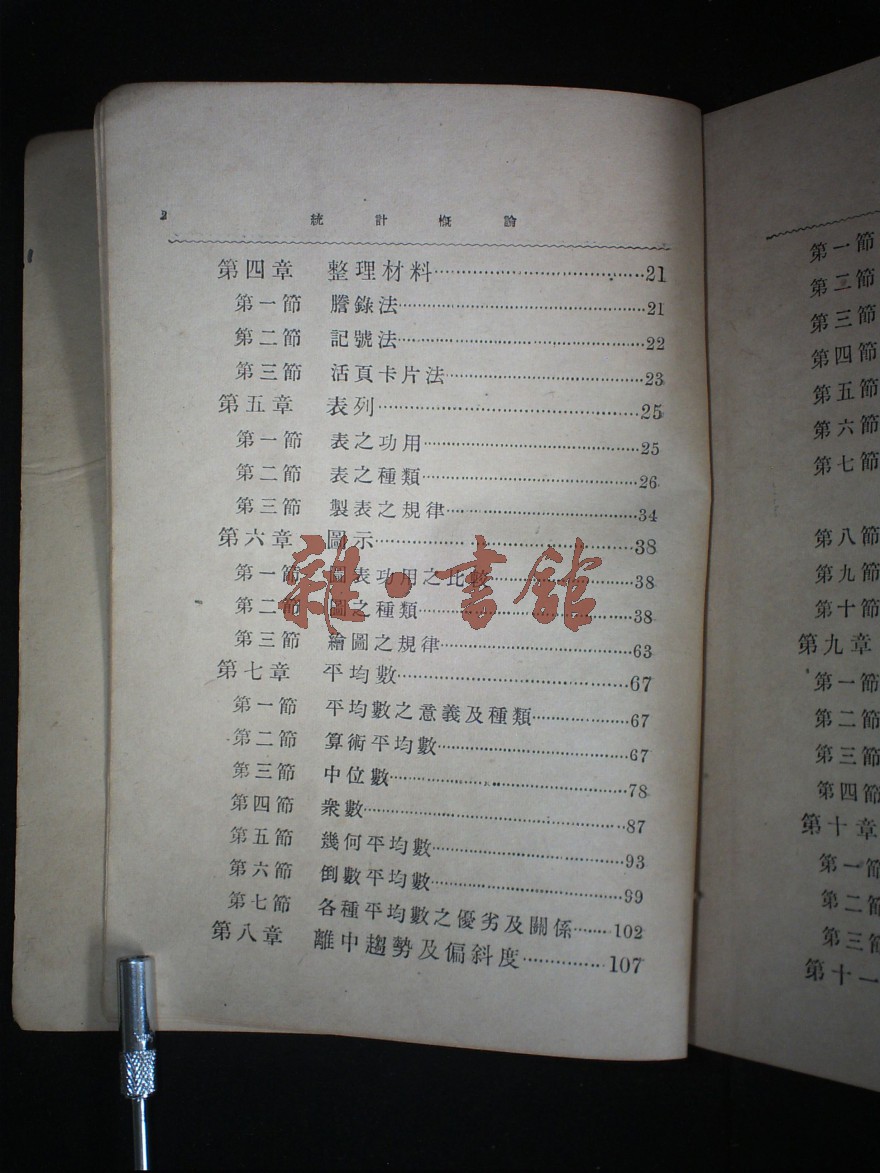 2 統計概論
第四章 整理材料……21
第一節 謄錄法……21
第二節 記號法……22
第三節 活頁卡片法……23
第五章 表列……25
第一節 表之功用……25
第二節 表之種類……26
第三節 製表之規律……34
第六章 圖示……38
第一節 圖表功用之比較……38
第二節 圖之種類……38
第三節 繪圖之規律……63
第七章 平均數……67
第一節 平均數之意義及種類……67
第二節 算術平均數……67
第三節 中位數……78
第四節 衆數……87
第五節 幾何平均數……93
第六節 倒數平均數……99
第七節 各種平均數之優劣及關係……102
第八章 離中趨勢及偏斜度……107
雜·書館
第一節
第二節
第三節
第四節
第五節
第六節
第七節
第八節
第九節
第十節
第九章
第一節
第二節
第三節
第四節
第十章
第一節
第二節
第三節
第十一